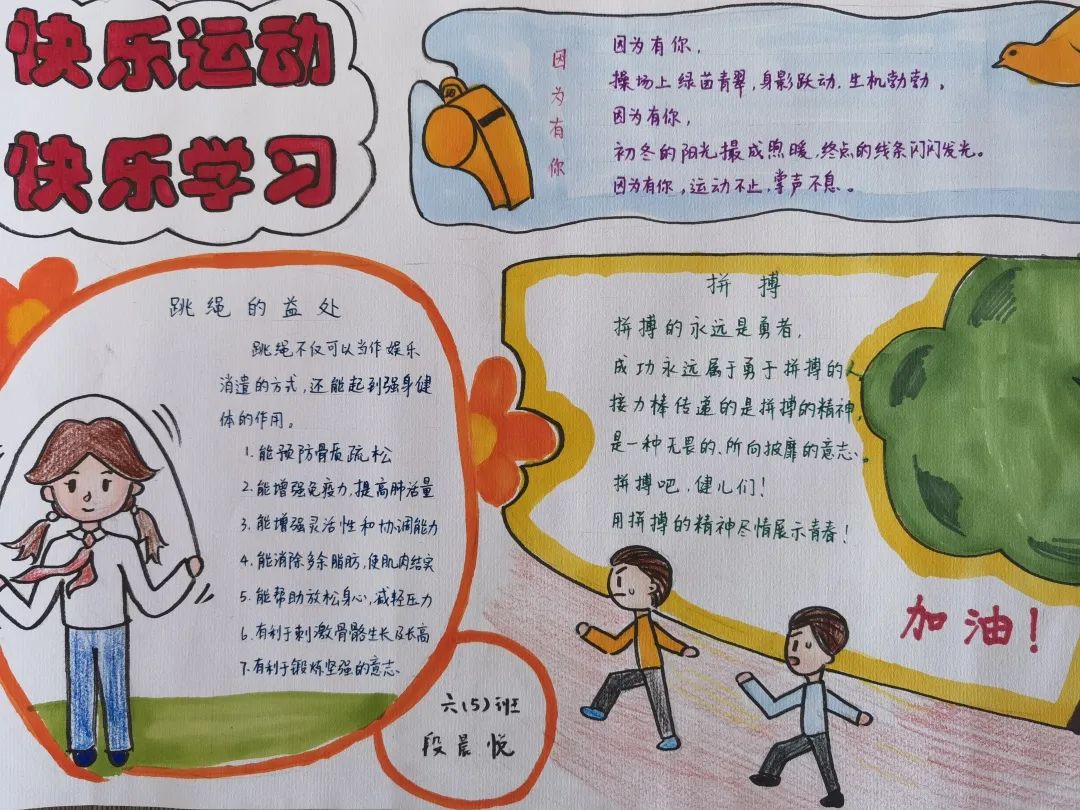 快乐运动
快乐学习
因为有你
因为有你，
操场上绿茵青翠，身影跃动，生机勃勃。
因为有你，
初冬的阳光撮成煦暖，终点的线条闪闪发光。
因为有你，运动不止，掌声不息。
跳绳的益处
跳绳不仅可以当作娱乐
消遣的方式，还能起到强身健
体的作用。
1.能预防骨质疏松
2.能增强免疫力，提高肺活量
3.能增强灵活性和协调能力
4.能消除多余脂肪，使肌肉结实
5.能帮助放松身心，减轻压力
6.有利于刺激骨骼生长及长高
7.有利于锻炼坚强的意志
六(5)班
段晨悦
拼搏
拼搏的永远是勇者，
成功永远属于勇于拼搏的人
接力棒传递的是拼搏的精神，
是一种无畏的、所向披靡的意志。
拼搏吧，健儿们！
用拼搏的精神尽情展示青春！
加油！